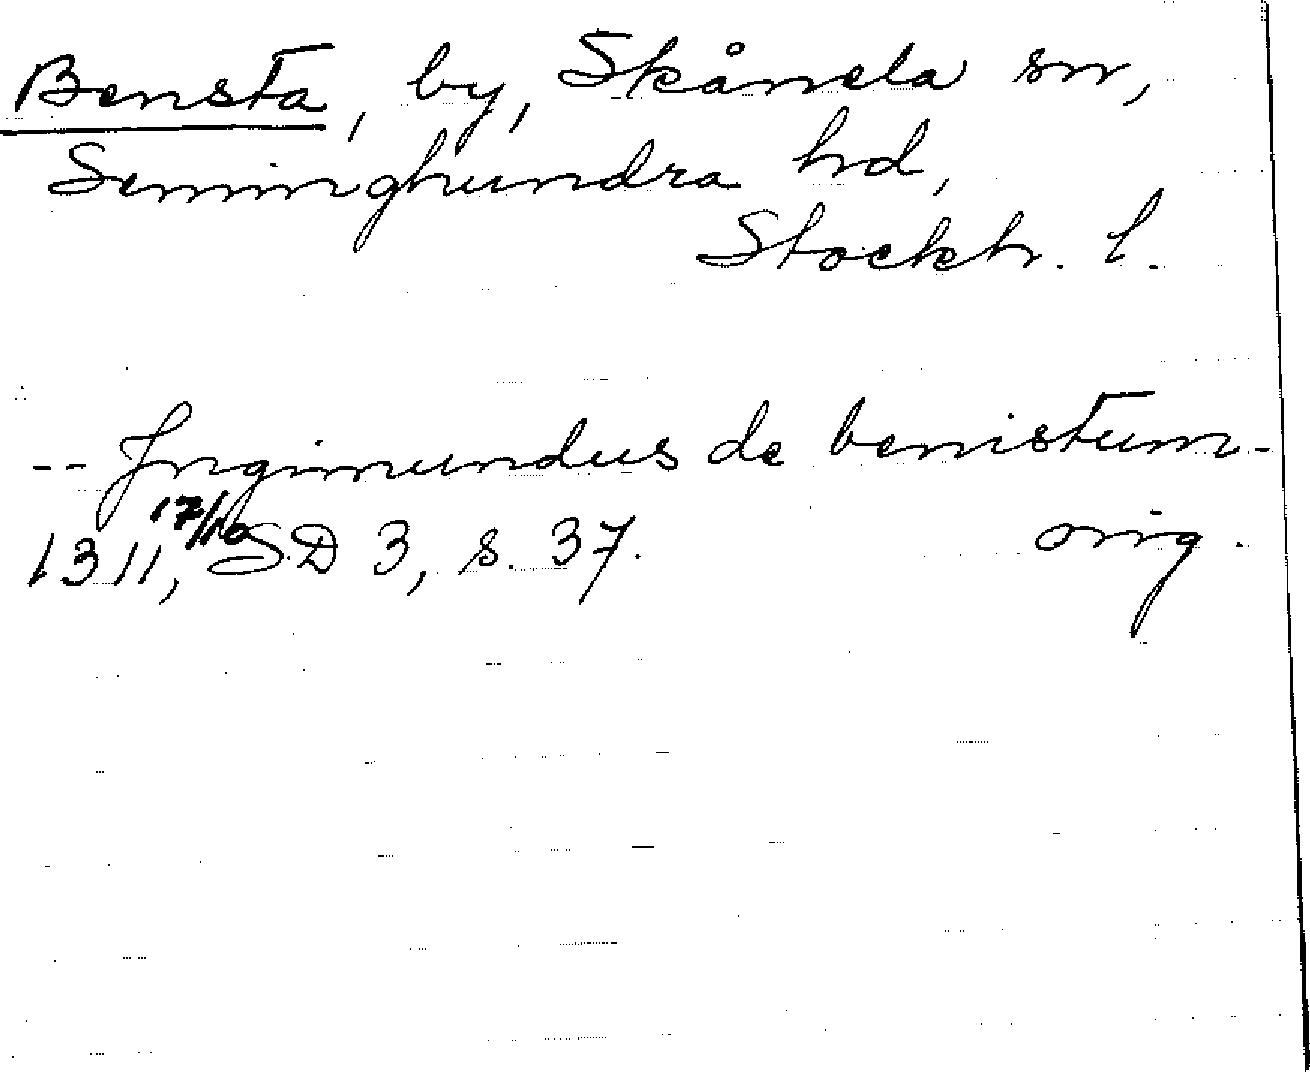 Bensta, by, Skånela sn,
Seminghundra hd,
Stockh. l.
-- Jngimundus de benistum -
1311, 17/10 SD 3, s. 37. orig.